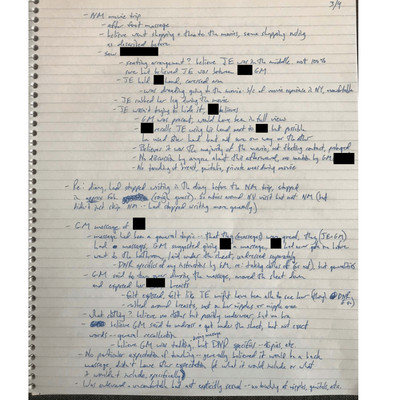 3/9
- NM movie trip
- after first massage
- believe went shopping + then to the movies, some shopping outing
as described before
- Saw
- seating arrangement? believe JE was in the middle, not 100%
sure but believed JE was between GM
- JE held hand, caressed arm
- was dreading going to the movie b/c of movie experience in NY, uncomfortable
- JE rubbed her leg during the movie
- JE wasn't trying to hide it, believes
- GM was present, would have been in full view
- recalls JE using his hand next to but possible
he used other hand but not sure one way or the other
- Believes it was the majority of the movie, not fleeting contact, prolonged
- No discussion by anyone about this afterward, no mention by GM,
- No touching of breast, genitalia, private areas during movie
- Re: diary, had stopped writing in the diary before the NM trip, stopped
in (rough guess). So entries around NY visit but not NM (but
didn't just skip NM - had stopped writing more generally)
- GM massage of
- message had been a general topic - that they (massages) were good, they (JE + GM)
had massages, GM suggested giving a massage, but never gave one before
- went to the bathroom, laid under the sheet, undressed separately
- DNR specifics of any instructions by GM re: taking clothes off or not, but generalities
- GM said to turn over during the massage, moved the sheet down
and exposed her breasts
- felt exposed, felt like JE might have been able to see her (though DNR
- rubbed around breasts, not on her nipples or nipple area
- What clothing? believe no clothes but possibly underwear, but no bra
- believe GM said to undress + get under the sheet, but not exact
words - general recollection
- believe GM was talking, but DNR specifics - topics etc.
- No particular expectation of touching - generally believed it would be a back
massage, didn't have other expectation for what it would include or what
it wouldn't include, specifically
- Was awkward + uncomfortable but not explicitly sexual - no touching of nipples, genitalia, etc.